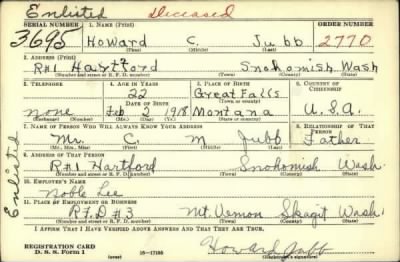 Enlisted Deceased
SERIAL NUMBER 1. NAME (Print) ORDER NUMBER
3695 Howard C. Jubb 2770
(First) (Middle) (Last)
2. ADDRESS (Print)
R#1 Hartford Snohomish Wash
(Number and street or R. F. D. number) (Town) (County) (State)
3. TELEPHONE 4. AGE IN YEARS 5. PLACE OF BIRTH 6. COUNTRY OF CITIZENSHIP
22 Great Falls
DATE OF BIRTH (Town or county)
none Feb 2 1918 Montana U.S.A.
(Exchange) (Number) (Mo.) (Day) (Yr.) (State or country)
7. NAME OF PERSON WHO WILL ALWAYS KNOW YOUR ADDRESS 8. RELATIONSHIP OF THAT PERSON
Mr. C. M. Jubb Father
(Mr., Mrs., Miss) (First) (Middle) (Last)
9. ADDRESS OF THAT PERSON
R#1 Hartford Snohomish Wash.
(Number and street or R. F. D. number) (Town) (County) (State)
10. EMPLOYER'S NAME
Noble Lee
11. PLACE OF EMPLOYMENT OR BUSINESS
R.F.D #3 Mt. Vernon Skagit Wash.
(Number and street or R. F. D. number) (Town) (County) (State)
I AFFIRM THAT I HAVE VERIFIED ABOVE ANSWERS AND THAT THEY ARE TRUE.
REGISTRATION CARD
D. S. S. Form 1 (over) 16—17105 Howard Jubb
(Registrant's signature)
Enlisted